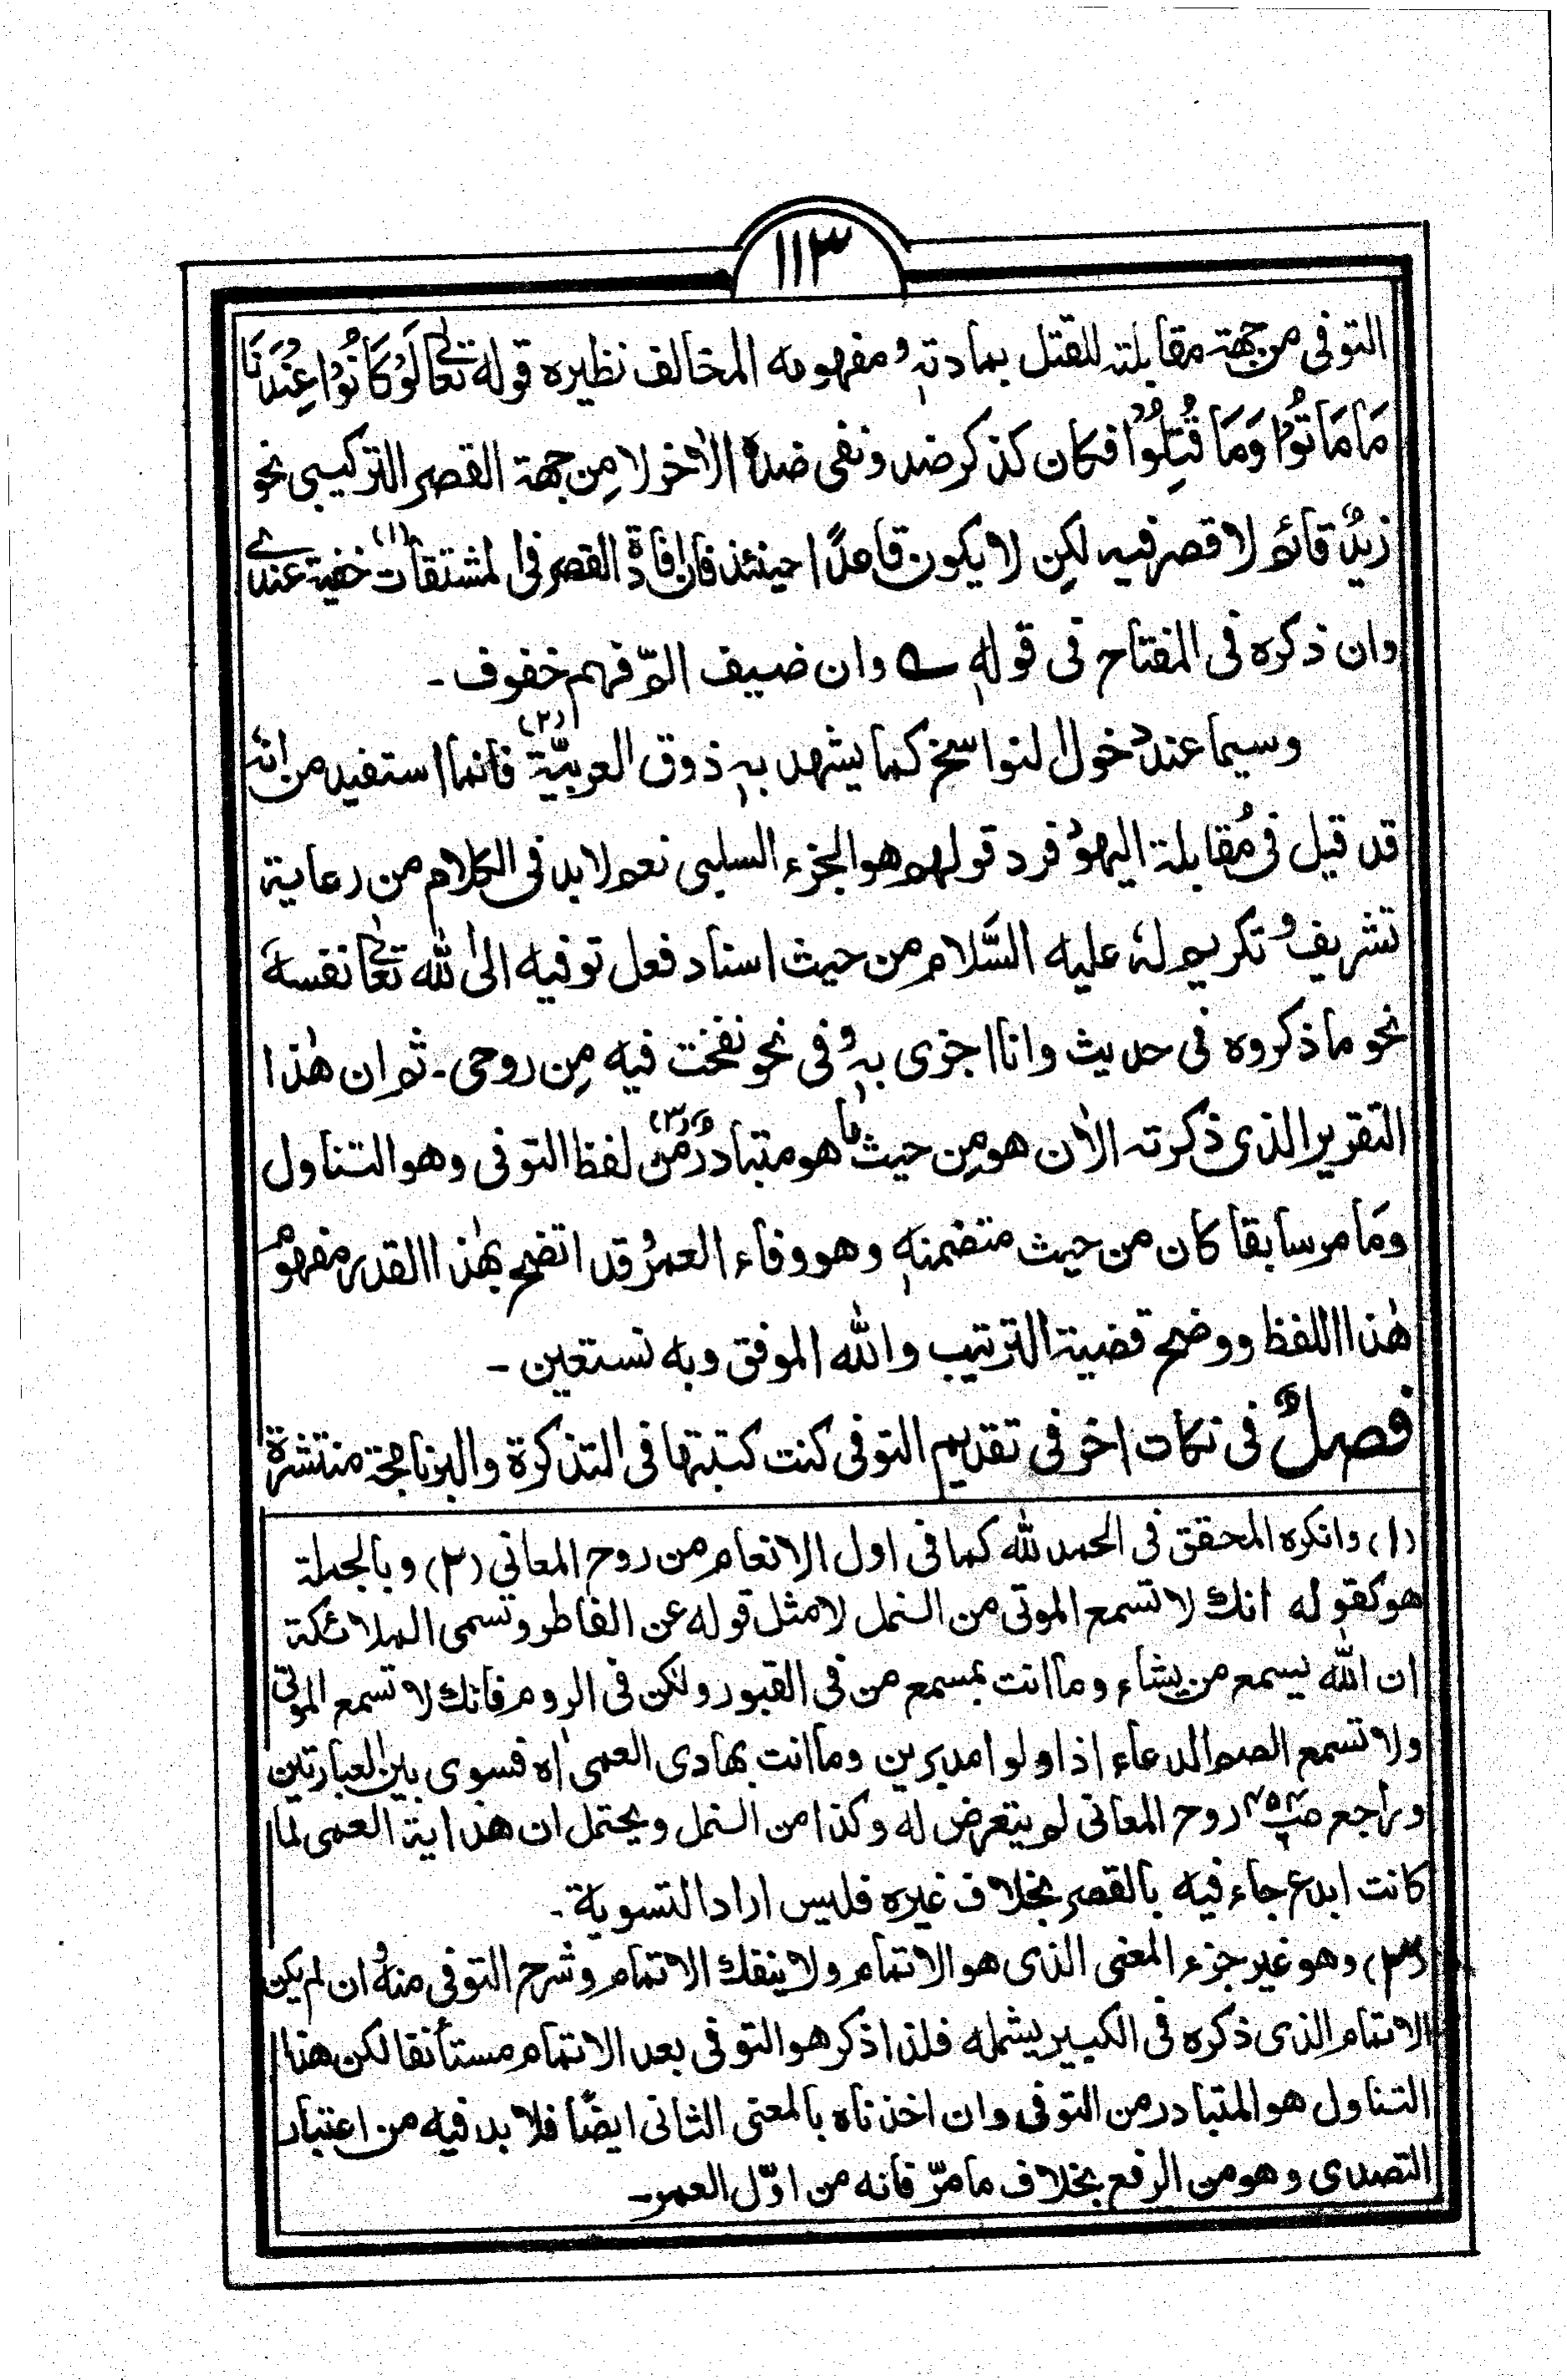 ١١٣
التوفى من جهة مقابلته للقتل بمادته ومفهومه المخالف نظيره قوله تعالى لَوْ كَانُوْا عِنْدَنَا
مَا مَاتُوْا وَمَا قُتِلُوْا فكان كذكر ضد ونفى ضده الاٰخر لا مِن جهة القصر التركيبى نحو
زيدٌ قائم لا قصر فيه لكِن لا يكون قاعدًا حينئذ فان افادة القصر فى المشتقات (١) خفية عندى
وان ذكره فى المفتاح فى قوله ؎ وان ضيف المّ فهم خفوف ۔
وسيما عند دخول النواسخ كما يشهد به ذوق العربيّة (٢) فانما استفيد من انه
قد قيل فى مُقابلة اليهود فرد قولهم هو الجزء السلبى نعم لا بد فى الكلام من رعاية
تشريف وتكريم له عليه السَّلام من حيث اسناد فعل توفيه الى الله تعالى نفسه
نحو ما ذكروه فى حديث وانا اجزى به وفى نحو نفخت فيه مِن روحى ۔ ثم ان هٰذا
التقرير الذى ذكرته الاٰن هو مِن حيث ما هو متبادر (٣) من لفظ التوفى وهو التناول
وَما مر سابقا كان من حيث متضمنه وهو وفاء العمر وقد اتضح بهٰذا القدر مفهوم
هٰذا اللفظ ووضح قضية الترتيب والله الموفق وبه نستعين ۔
فصلٌ فى نكات اخر فى تقديم التوفى كنت كتبتها فى التذكرة والبرنامجة منتشرة
(١) وانكره المحقق فى الحمد لله كما فى اول الانعام من روح المعانى (٢) وبالجملة
هو كقوله انك لا تسمع الموتى من النمل لا مثل قوله عن الفاطر وتسمى الملائكة
ان الله يسمع من يشاء وما انت بمسمع من فى القبور ولكن فى الروم فانك لا تسمع الموتى
ولا تسمع الصم الدعاء اذا ولوا مدبرين وما انت بهادى العمى اه فسوى بين العبارتين
وراجع روح المعانى لم يتعرض له وكذا من النمل ويحتمل ان هداية العمى لما
كانت ابدع جاء فيه بالقصر بخلاف غيره فليس اراد التسوية ۔
(٣) وهو غير جزء المعنى الذى هو الاتمام ولا ينفك الاتمام وشرح التوفى منه وان لم يكن
الاتمام الذى ذكره فى الكبير يشمله فلذا ذكر هو التوفى بعد الاتمام مستأنفا لكن هذا
التناول هو المتبادر من التوفى وان اخذناه بالمعنى الثانى ايضًا فلا بد فيه من اعتبار
التصدى وهو من الرفع بخلاف ما مرّ فانه من اوّل العمر ۔